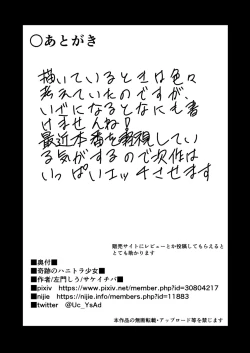 ○あとがき
描いているときは色々
考えていたのですが、
いざになるとなにも書
けませんね!
最近本番を軽視してい
る気がするので次作は
いっぱいエッチさせます
販売サイトにレビューとか投稿してもらえると
とても助かります
■奥付■
■奇跡のハニトラ少女■
■作者/左門しう/サケイチバ■
■pixiv　https://www.pixiv.net/member.php?id=30804217
■nijie　https://nijie.info/members.php?id=11883
■twitter　@Uc_YsAd
本作品の無断転載・アップロード等を禁じます